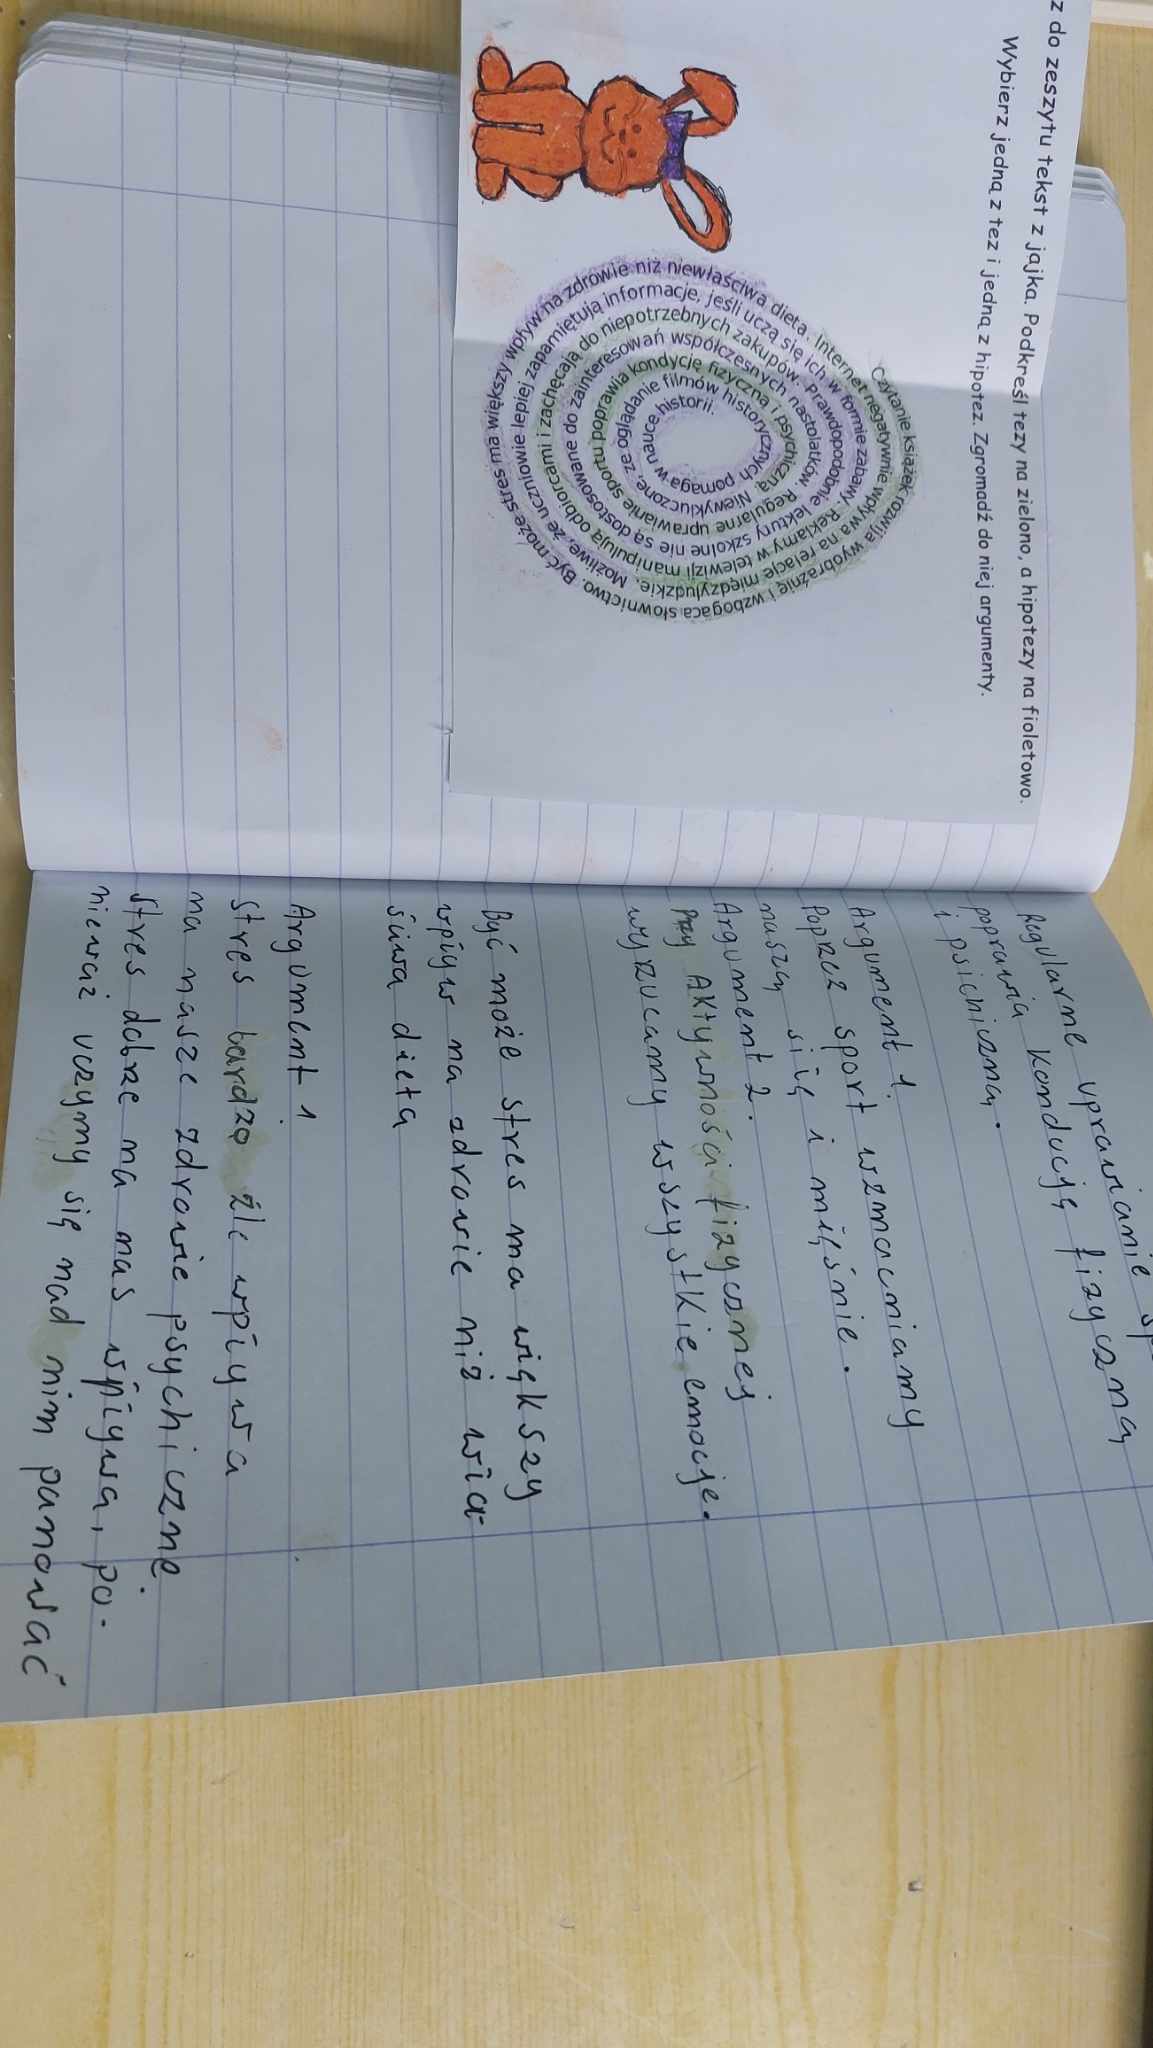 z do zeszytu tekst z jajka. Podkreśl tezy na zielono, a hipotezy na fioletowo.
Wybierz jedną z tez i jedną z hipotez. Zgromadź do niej argumenty.
Czytanie książek rozwija wyobraźnię i wzbogaca słownictwo. Być może stres ma większy wpływ na zdrowie niż niewłaściwa dieta. Internet negatywnie wpływa na relacje międzyludzkie. Możliwe, że uczniowie lepiej zapamiętują informacje, jeśli uczą się ich w formie zabawy. Reklamy w telewizji manipulują odbiorcami i zachęcają do niepotrzebnych zakupów. Prawdopodobnie lektury szkolne nie są dostosowane do zainteresowań współczesnych nastolatków. Regularne uprawianie sportu poprawia kondycję fizyczną i psychiczną. Niewykluczone, ze oglądanie filmów historycznych pomaga w nauce historii.
Regularne uprawianie sp
poprawia konducję fizyczną
i psichiczną.
Argument 1.
Poprzez sport wzmacniamy
naszą siłę i mięśnie.
Argument 2.
Przy Aktywności fizycznej
wyrzucamy wszystkie emocje.
Być może stres ma większy
wpływ na zdrowie niż właś-
śiwa dieta
Argument 1
Stres bardzo źle wpływa
na nasze zdrowie psychiczne.
Stres dobrze na nas wpływa, po-
nieważ uczymy się nad nim panować